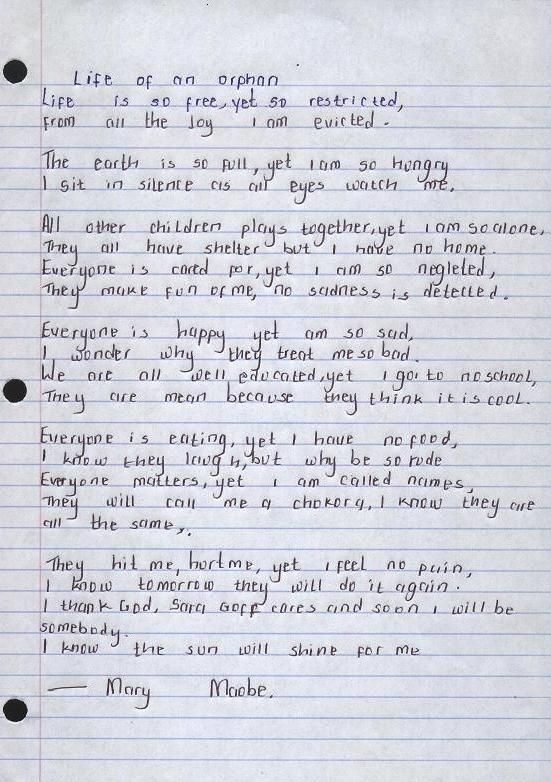 Life of an orphan
Life is so free, yet so restricted,
from all the Joy I am evicted.
The earth is so full, yet I am so hungry
I sit in silence as all eyes watch me.
All other children plays together, yet I am so alone,
They all have shelter but I have no home.
Everyone is cared for, yet I am so negleted,
They make fun of me, no sadness is detected.
Everyone is happy yet am so sad,
I wonder why they treat me so bad.
We are all well educated, yet I go to no school,
They are mean because they think it is cool.
Everyone is eating, yet I have no food,
I know they laugh, but why be so rude
Everyone matters, yet I am called names,
They will call me a chokora, I know they are
all the same,.
They hit me, hurt me, yet I feel no pain,
I know tomorrow they will do it again.
I thank God, Sara Goff cares and soon I will be
somebody.
I know the sun will shine for me
— Mary Maobe.